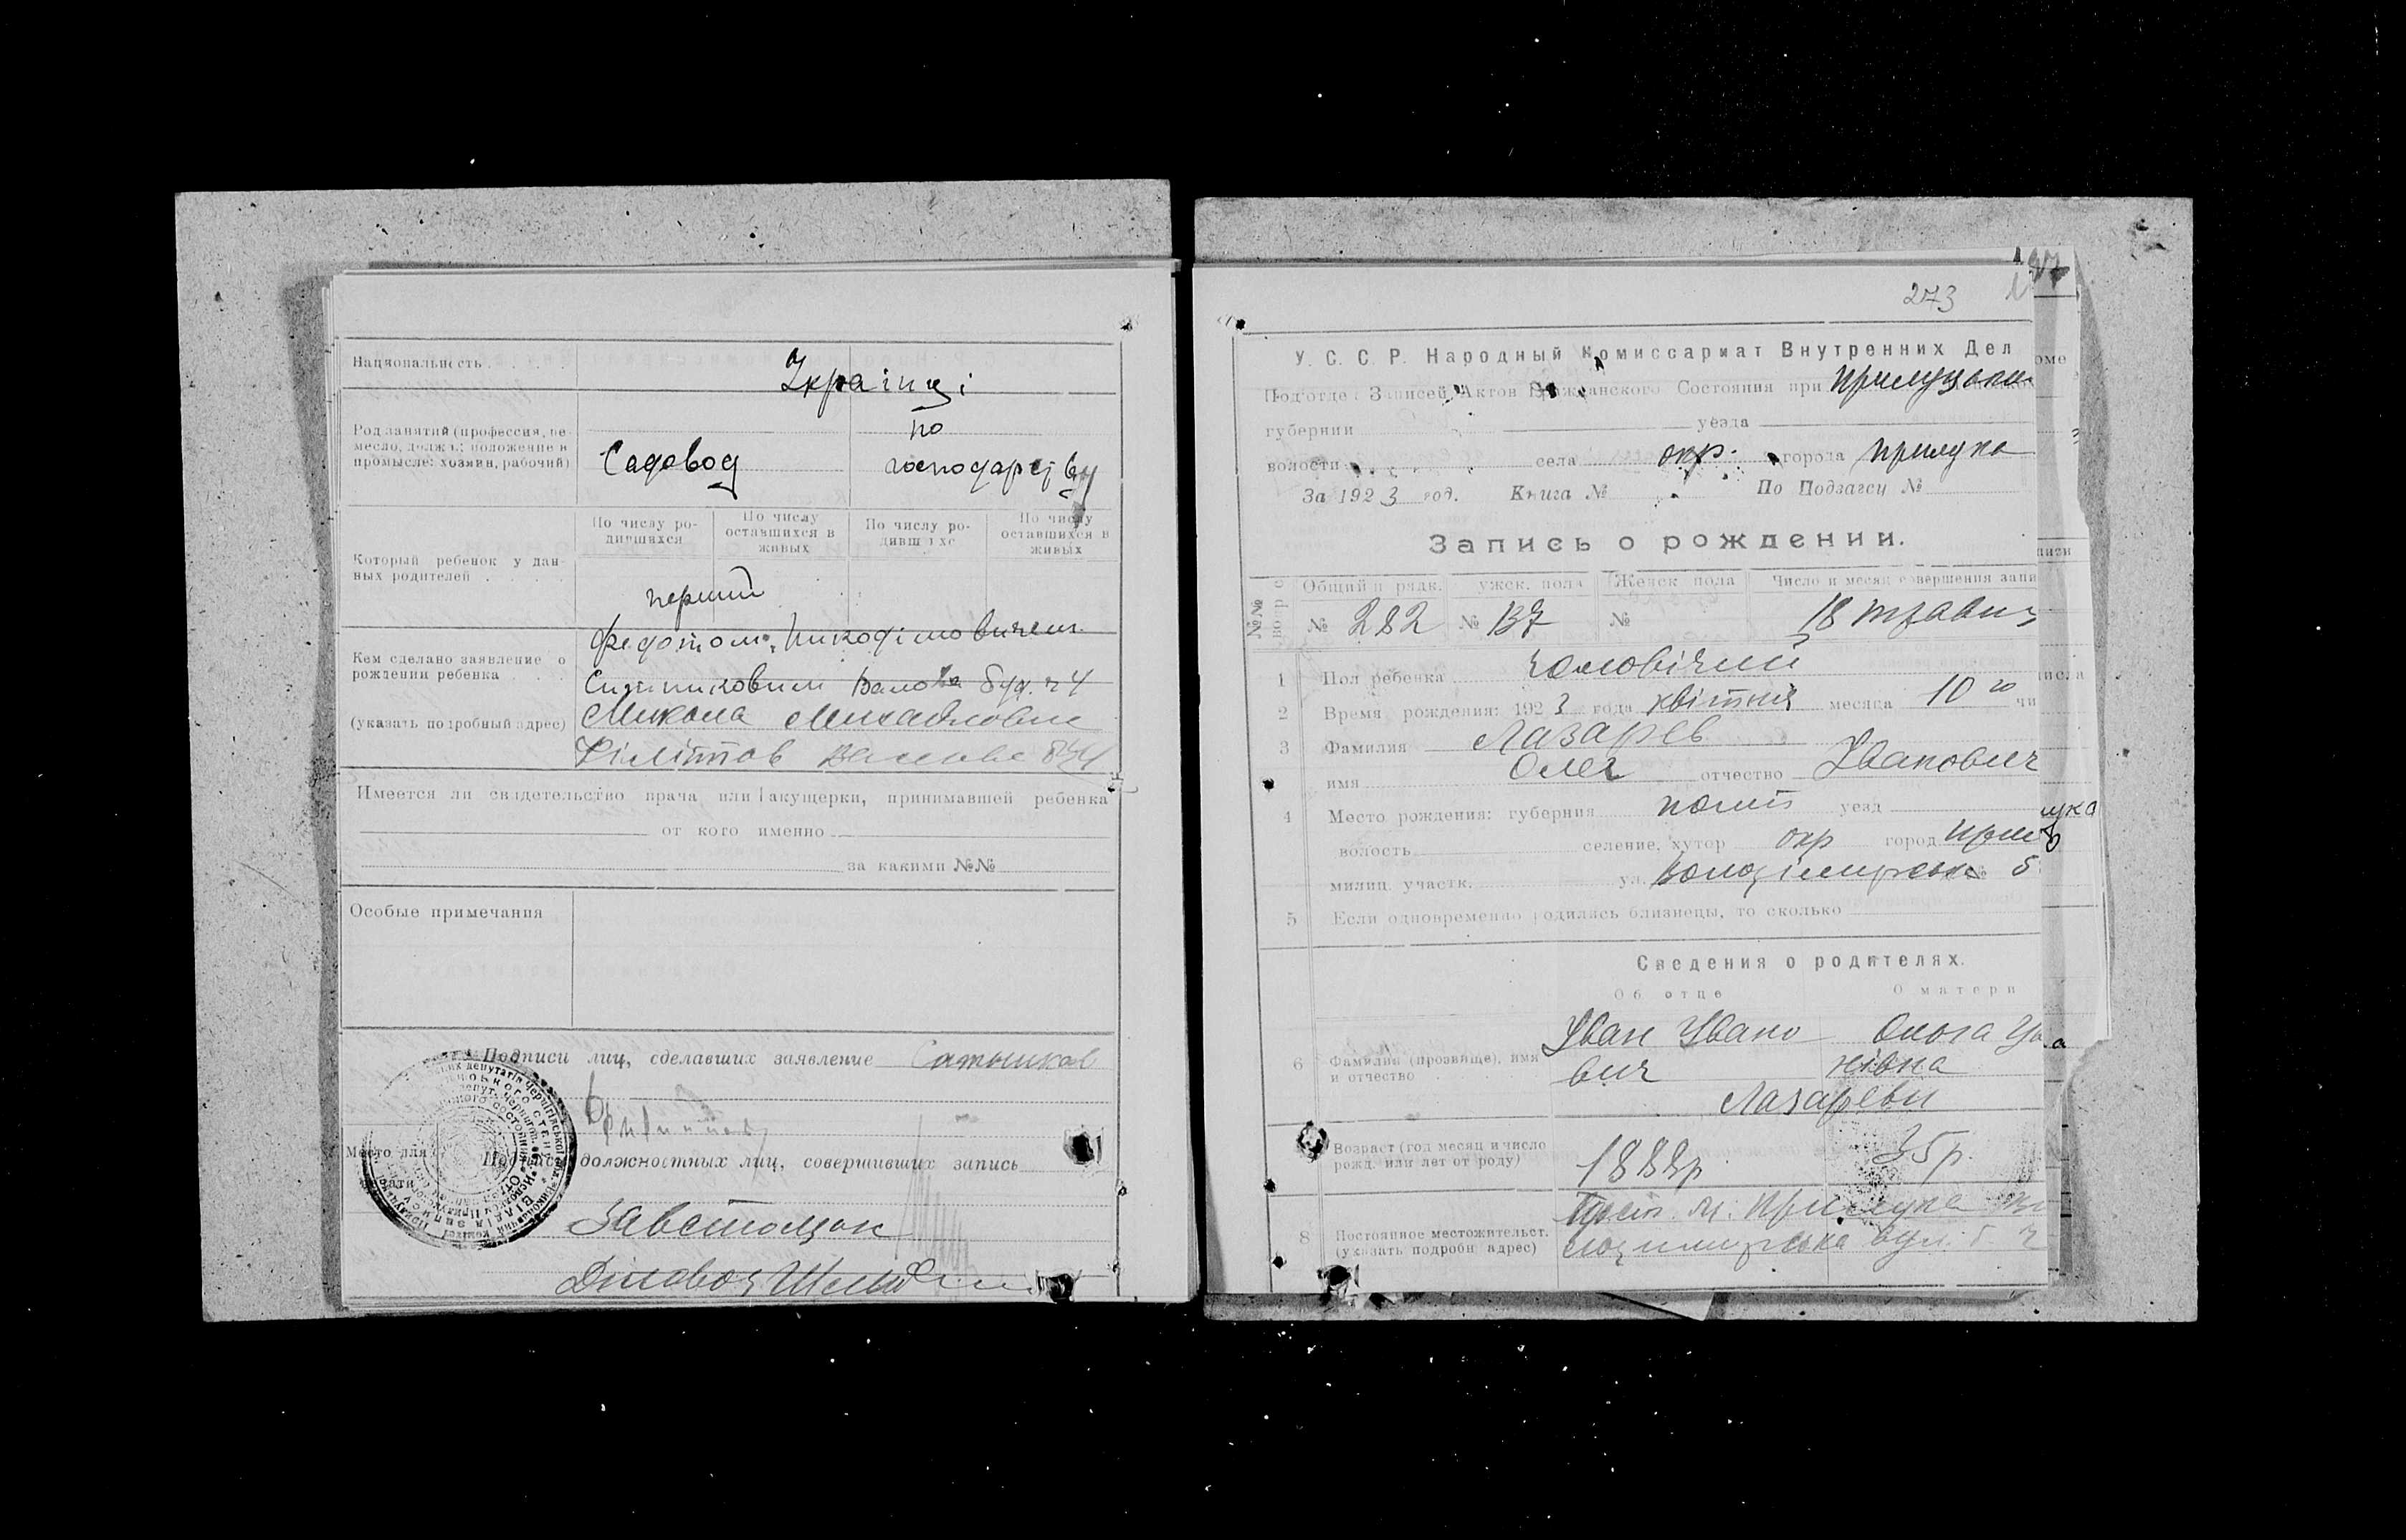 Национальность
Українці
Род занятий (профессия, ре-
месло, должн: положение в
промысле: хозяин, рабочий)
Садовод
по
господарству
Который ребенок у дан-
ных родителей
По числу ро-
дившихся
По числу
оставшихся в
живых
По числу ро-
дивш хс
По числу
оставшихся в
живых
перший
Кем сделано заявление о
рождении ребенка
(указать подробный адрес)
Федотом Никодімовичем
Ситниковим Валова буд. ч 4
Микола Михайлович
Філіппов Валова
Имеется ли свидетельство врача или акушерки, принимавшей ребенка
от кого именно
за какими №№
Особые примечания
Подписи лиц, сделавших заявление
Место для
печати
Подписи должностных лиц, совершивших запись
Завстолом
Діловод
273
У. С. С. Р. Народный Комиссариат Внутренних Дел
Подотдел Записей Актов Гражданского Состояния при Прилуцьки
губернии уезда
волости села окр. города Прилука
За 1923 год. Книга № По Подзагсу №
Запись о рождении.
№№
Общий п рядк. ужск. пола Женск пола Число и месяц совершения запи
№ 282 № 137 № 18 травня
1 Пол ребенка чоловічий
2 Время рождения: 1923 года квітня месяца 10 го чи
3 Фамилия Лазарев
имя Олег отчество Іванович
4 Место рождения: губерния полт уезд
волость селение, хутор окр город Прил
милиц. участк. ул. Володімирська № 5
5 Если одновременно родились близнецы, то сколько
Сведения о родителях.
Об отце О матери
6 Фамилия (прозвище), имя
и отчество
Іван Івано
вич
Ольга
Лазареви
Возраст (год месяц и число
рожд. или лет от роду)
1883р 35р.
8 Постоянное местожительст.
(указать подробн адрес)
м. Прилука Во
лодимирська вул.